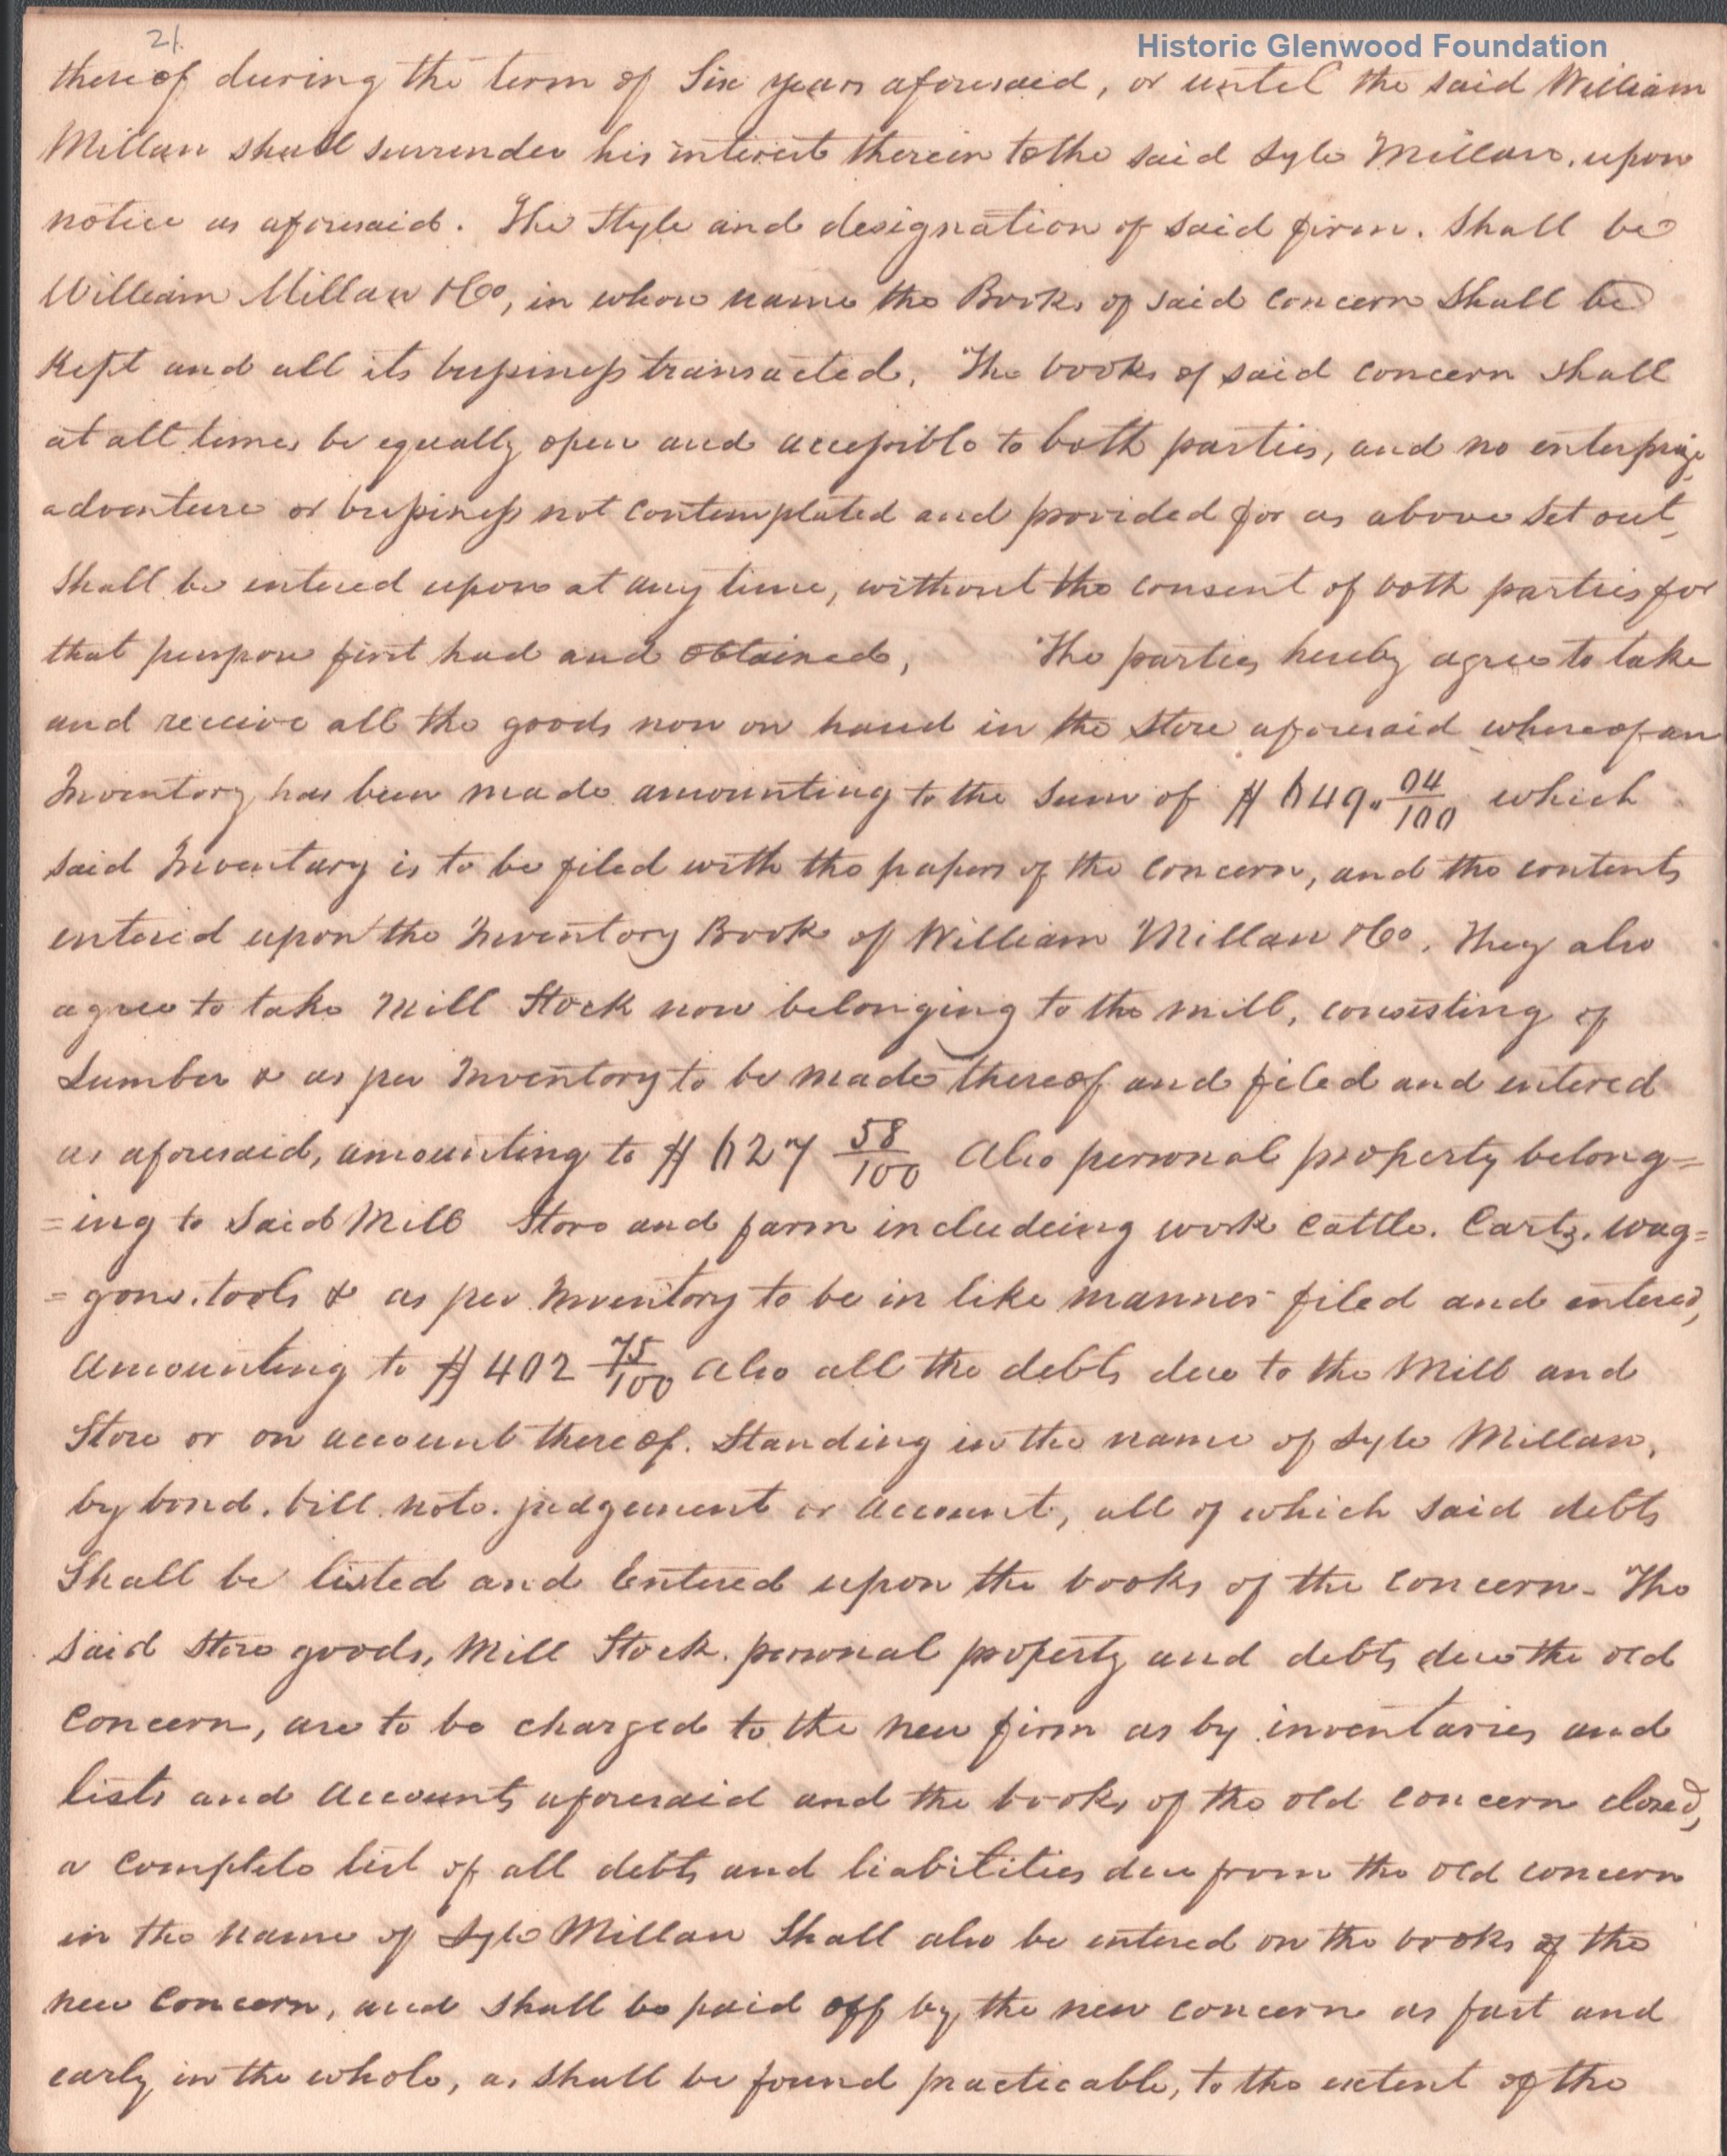 Historic Glenwood Foundation
2.
thereof during the term of Six years aforesaid, or until the said William
Millan shall surrender his interest therein to the said Lyle Millan, upon
notice as aforesaid. The Style and designation of said firm. Shall be
William Millan & Co, in whose name the Books of said Concern Shall be
Kept and all its business transacted. The books of said concern shall
at all times be equally open and accessible to both parties, and no enterprize
adventure or business not contemplated and provided for as above set out,
Shall be entered upon at any time, without the consent of both parties for
that purpose first had and obtained, The parties hereby agree to take
and receive all the goods now on hand in the Store aforesaid whereof an
Inventory has been made amounting to the Sum of $ 649. 04/100 which
said Inventary is to be filed with the papers of the Concern, and the contents
entered upon the Inventory Book of William Millan & Co. They also
agree to take Mill Stock now belonging to the mill, consisting of
Lumber & as per Inventory to be made thereof and filed and entered
as aforesaid, amounting to $ 627 58/100 Also personal property belong=
=ing to Said Mill Store and farm includeing work Cattle. Carts. wag=
=gons. tools & as per Inventory to be in like manner filed and entered,
Amounting to $ 402 75/100 Also all the debts due to the Mill and
Store or on account thereof. Standing in the name of Lyle Millan,
by bond. bill. note. judgement or account, all of which said debts
Shall be listed and Entered upon the books of the Concern - The
said store goods, Mill Stock. personal property and debts due the old
Concern, are to be charged to the new firm as by inventaries and
lists and accounts aforesaid and the books of the old concern closed,
a complete list of all debts and liabilities due from the old concern
in the name of Lyle Millan Shall also be entered on the books of the
new Concern, and shall be paid off by the new concern as fast and
early in the whole, as shall be found practicable, to the extent of the